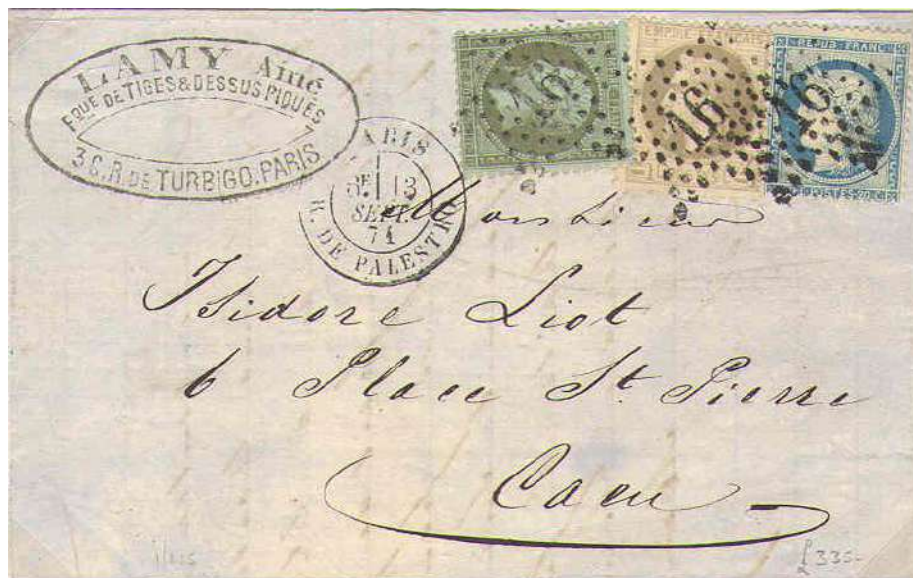 LAMY Aîné
Fque DE TIGES & DESSUS PIQUÉS
36.R DE TURBIGO.PARIS
PARIS
6E 13
SEPT.
71
R. DE PALESTRO
EMPIRE FRANÇAIS
REPUB. FRANC.
16
16
16
POSTES 20 C
Monsieur
Isidore Liot
6 Place St. Pierre
Caen
£335-